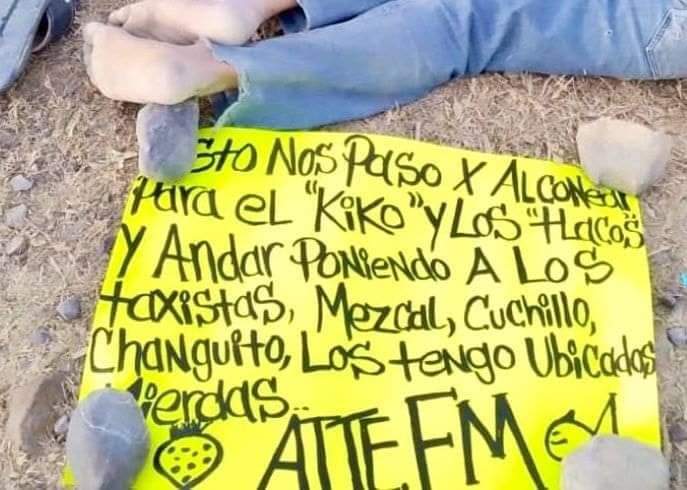 Esto Nos Paso X ALCONEar
Para eL "KiKo" y Los "tLacos"
Y Andar PoNieNdo A Los
taxistas, Mezcal, Cuchillo,
ChaNguito, Los teNgo Ubicados
Mierdas..
ATTE.FM